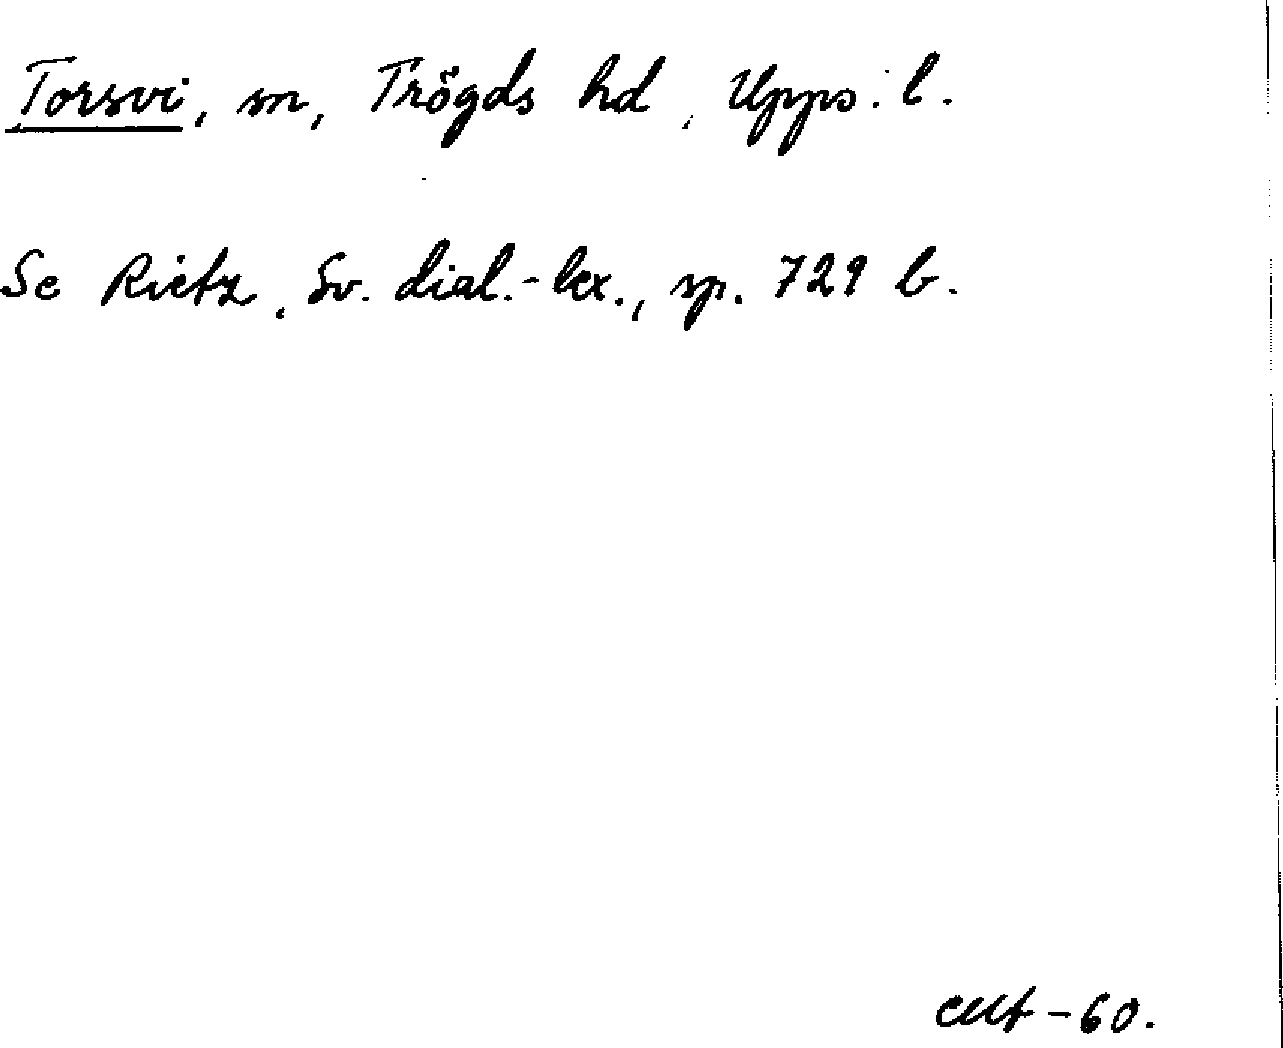 Torsvi, sn, Trögds hd, Upps. l.
Se Rietz, Sv. dial.-lex., sp. 729 b.
-60.